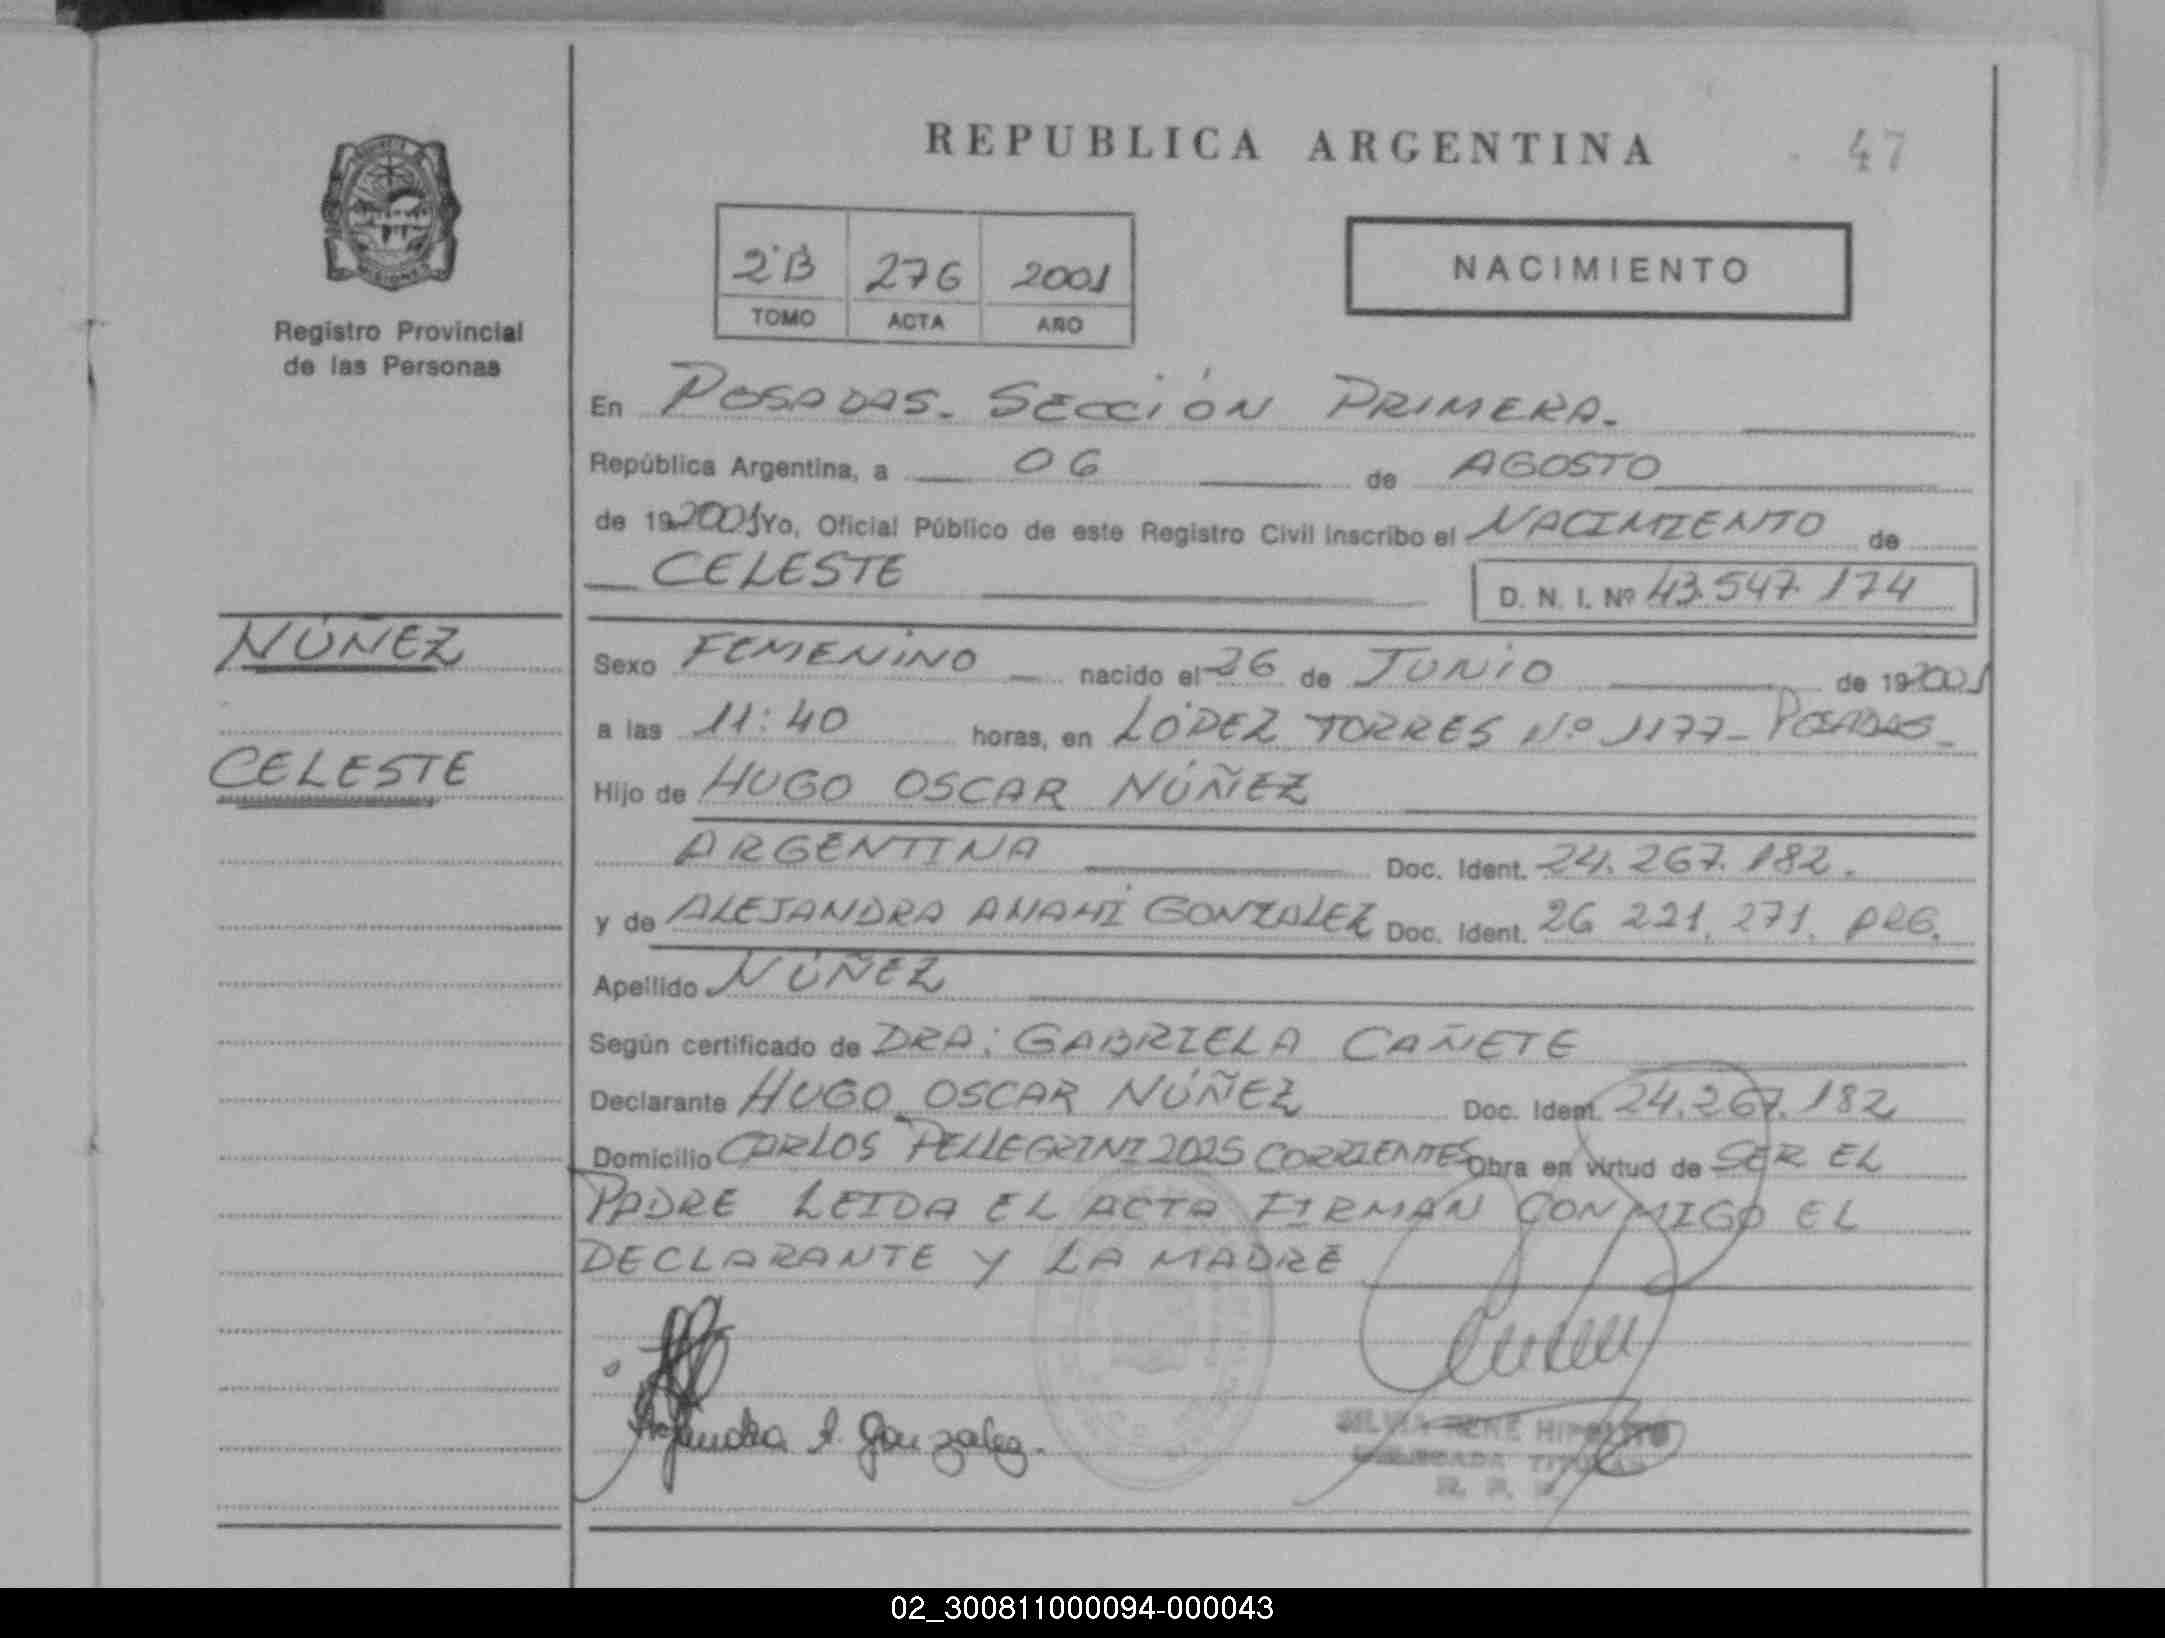 REPUBLICA ARGENTINA
47
Registro Provincial
de las Personas
2ºB 276 2001
TOMO ACTA AÑO
NACIMIENTO
En POSADAS. SECCIÓN PRIMERA.
República Argentina, a 06 de AGOSTO
de 192001 Yo, Oficial Público de este Registro Civil inscribo el NACIMIENTO de
CELESTE
D. N. I. Nº 43.547.174
NÚÑEZ
CELESTE
Sexo FEMENINO nacido el 26 de JUNIO de 192001
a las 11:40 horas, en LÓPEZ TORRES Nº 1177- POSADAS-
Hijo de HUGO OSCAR NÚÑEZ
ARGENTINA Doc. Ident. 24.267.182.
y de ALEJANDRA ANAHÍ GONZALEZ Doc. Ident. 26 221.271. ARG.
Apellido NÚÑEZ
Según certificado de DRA: GABRIELA CAÑETE
Declarante HUGO OSCAR NÚÑEZ Doc. Ident. 24.267.182
Domicilio CARLOS PELLEGRINI 2025 CORRIENTES Obra en virtud de SER EL
PADRE LEIDA EL ACTA FIRMAN CONMIGO EL
DECLARANTE Y LA MADRE
Alejandra A. Gonzalez.
SILVIA RENÉ HIPOLITO
DELEGADA TITULAR
R. P.
02_300811000094-000043